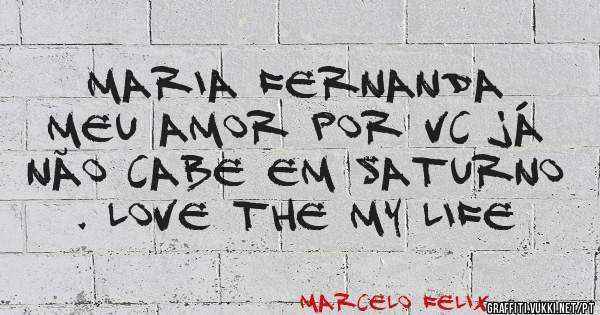 MARIA FERNANDA
MEU AMOR POR VC JÁ
NÃO CABE EM SATURNO
. LOVE THE MY LIFE
MARCELO FELIX
GRAFFITI.VUKKI.NET/PT